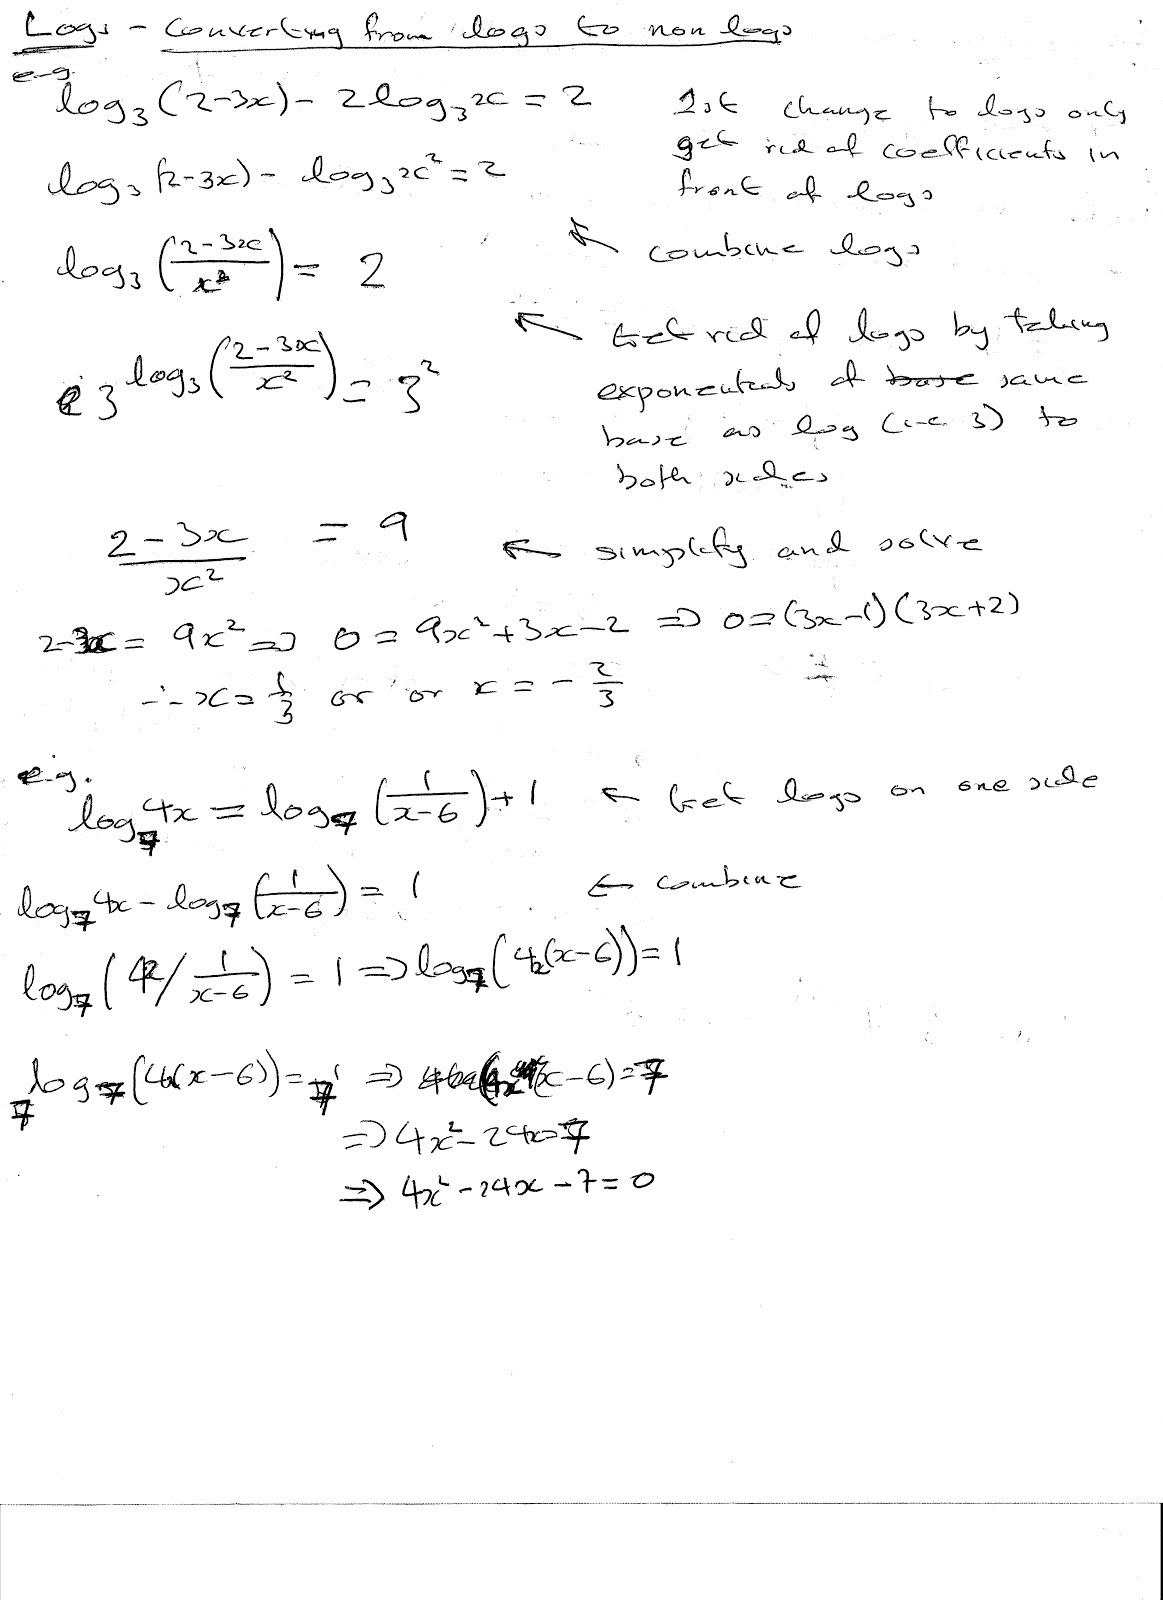 Logs - Converting from logs to non logs
e-g.
log₃(2-3x) - 2log₃x = 2
1st change to logs only
get rid of coefficients in
front of logs
log₃(2-3x) - log₃x² = 2
combine logs
log₃((2-3x)/x²) = 2
Get rid of logs by taking
exponentials of same
base as log (i-e 3) to
both sides
3^log₃((2-3x)/x²) = 3²
(2-3x)/x² = 9 ← simplify and solve
2-3x = 9x² ⇒ 0 = 9x²+3x-2 ⇒ 0=(3x-1)(3x+2)
∴ x = 1/3 or or x = -2/3
e.g.
log₇4x = log₇(1/(x-6)) + 1 ← Get logs on one side
log₇4x - log₇(1/(x-6)) = 1 ← combine
log₇(4x/ 1/(x-6)) = 1 ⇒ log₇(4x(x-6)) = 1
7^log₇(4x(x-6)) = 7¹ ⇒ 4x(x-6) = 7
⇒ 4x² - 24x = 7
⇒ 4x² - 24x - 7 = 0